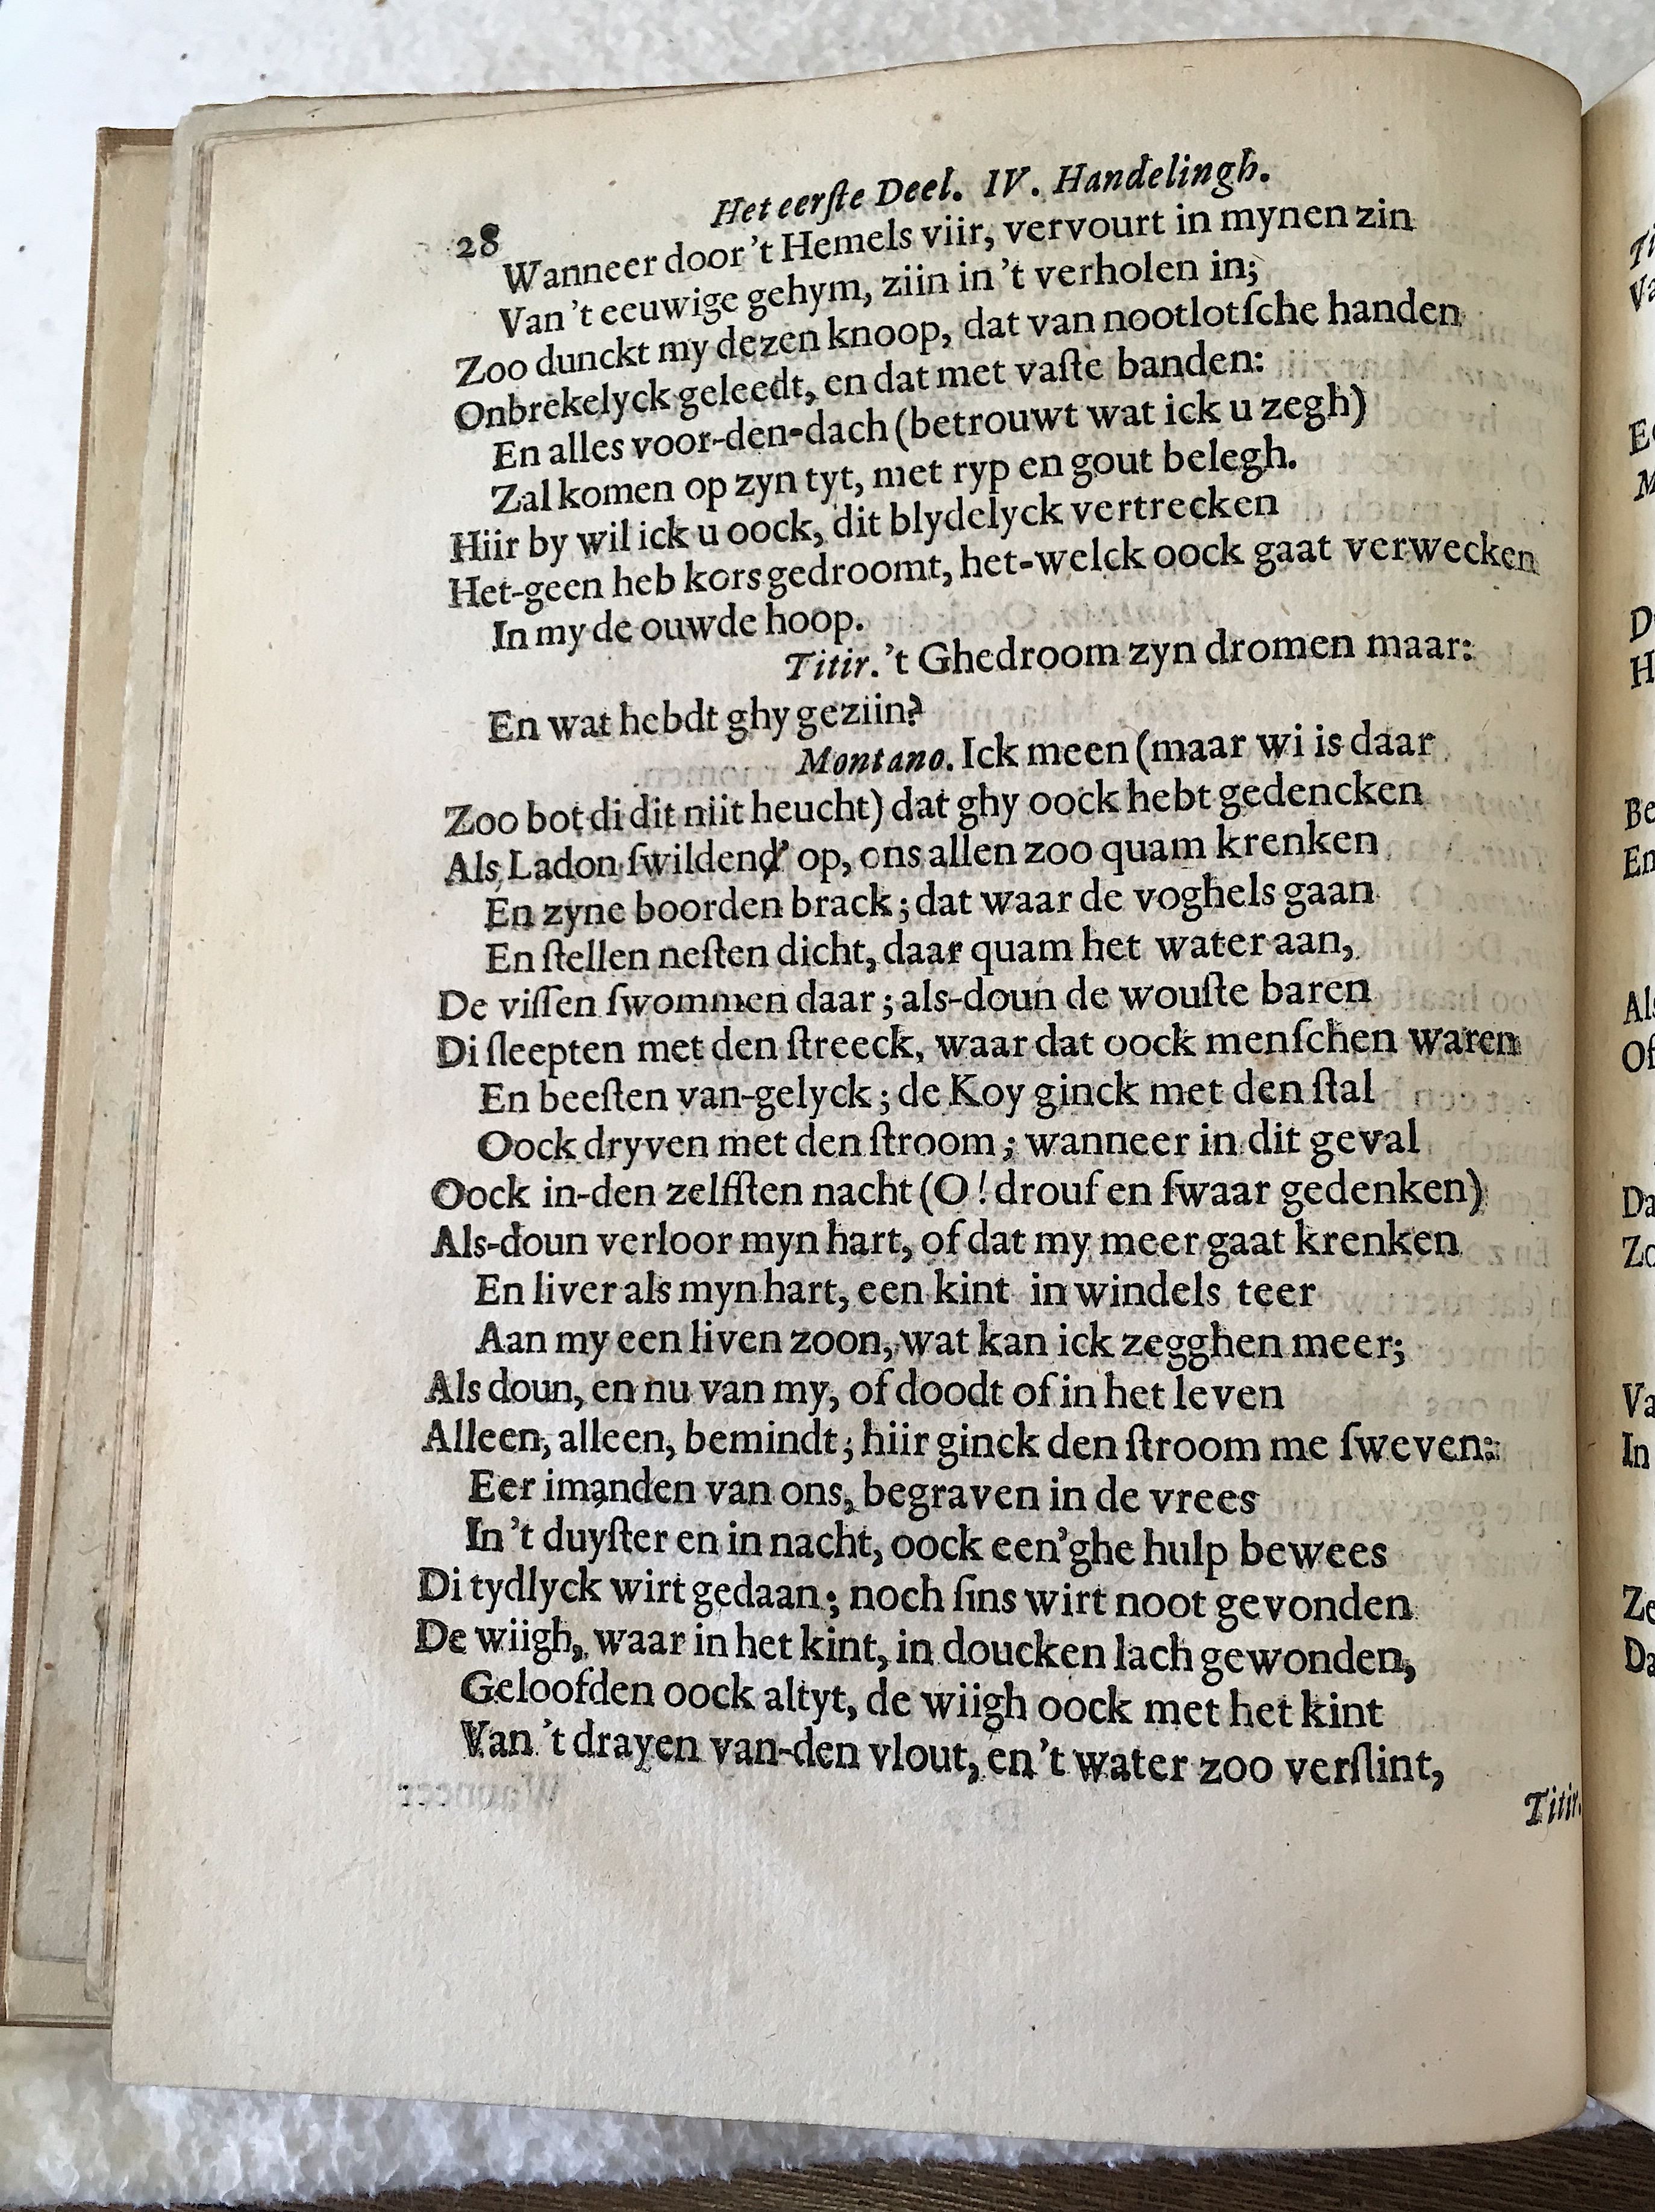 Het eerſte Deel. IV. Handelingh.
28
Wanneer door 't Hemels viir, vervourt in mynen zin
Van 't eeuwige gehym, ziin in 't verholen in;
Zoo dunckt my dezen knoop, dat van nootlotſche handen
Onbrekelyck geleedt, en dat met vaſte banden:
En alles voor-den-dach (betrouwt wat ick u zegh)
Zal komen op zyn tyt, met ryp en gout belegh.
Hiir by wil ick u oock, dit blydelyck vertrecken
Het-geen heb kors gedroomt, het-welck oock gaat verwecken
In my de ouwde hoop.
Titir. 't Ghedroom zyn dromen maar:
En wat hebdt ghy geziin?
Montano. Ick meen (maar wi is daar
Zoo bot di dit niit heucht) dat ghy oock hebt gedencken
Als Ladon ſwildend' op, ons allen zoo quam krenken
En zyne boorden brack; dat waar de voghels gaan
En ſtellen neſten dicht, daar quam het water aan,
De viſſen ſwommen daar; als-doun de wouſte baren
Di ſleepten met den ſtreeck, waar dat oock menſchen waren
En beeſten van-gelyck; de Koy ginck met den ſtal
Oock dryven met den ſtroom; wanneer in dit geval
Oock in-den zelfſten nacht (O! drouf en ſwaar gedenken)
Als-doun verloor myn hart, of dat my meer gaat krenken
En liver als myn hart, een kint in windels teer
Aan my een liven zoon, wat kan ick zegghen meer;
Als doun, en nu van my, of doodt of in het leven
Alleen, alleen, bemindt; hiir ginck den ſtroom me ſweven:
Eer imanden van ons, begraven in de vrees
In 't duyſter en in nacht, oock een'ghe hulp bewees
Di tydlyck wirt gedaan; noch ſins wirt noot gevonden
De wiigh, waar in het kint, in doucken lach gewonden,
Geloofden oock altyt, de wiigh oock met het kint
Van 't drayen van-den vlout, en 't water zoo verſlint,
Titir.